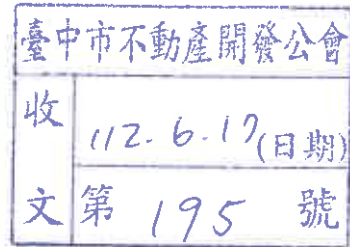 臺中市不動產開發公會
收 112.6.17(日期)
文 第 195 號